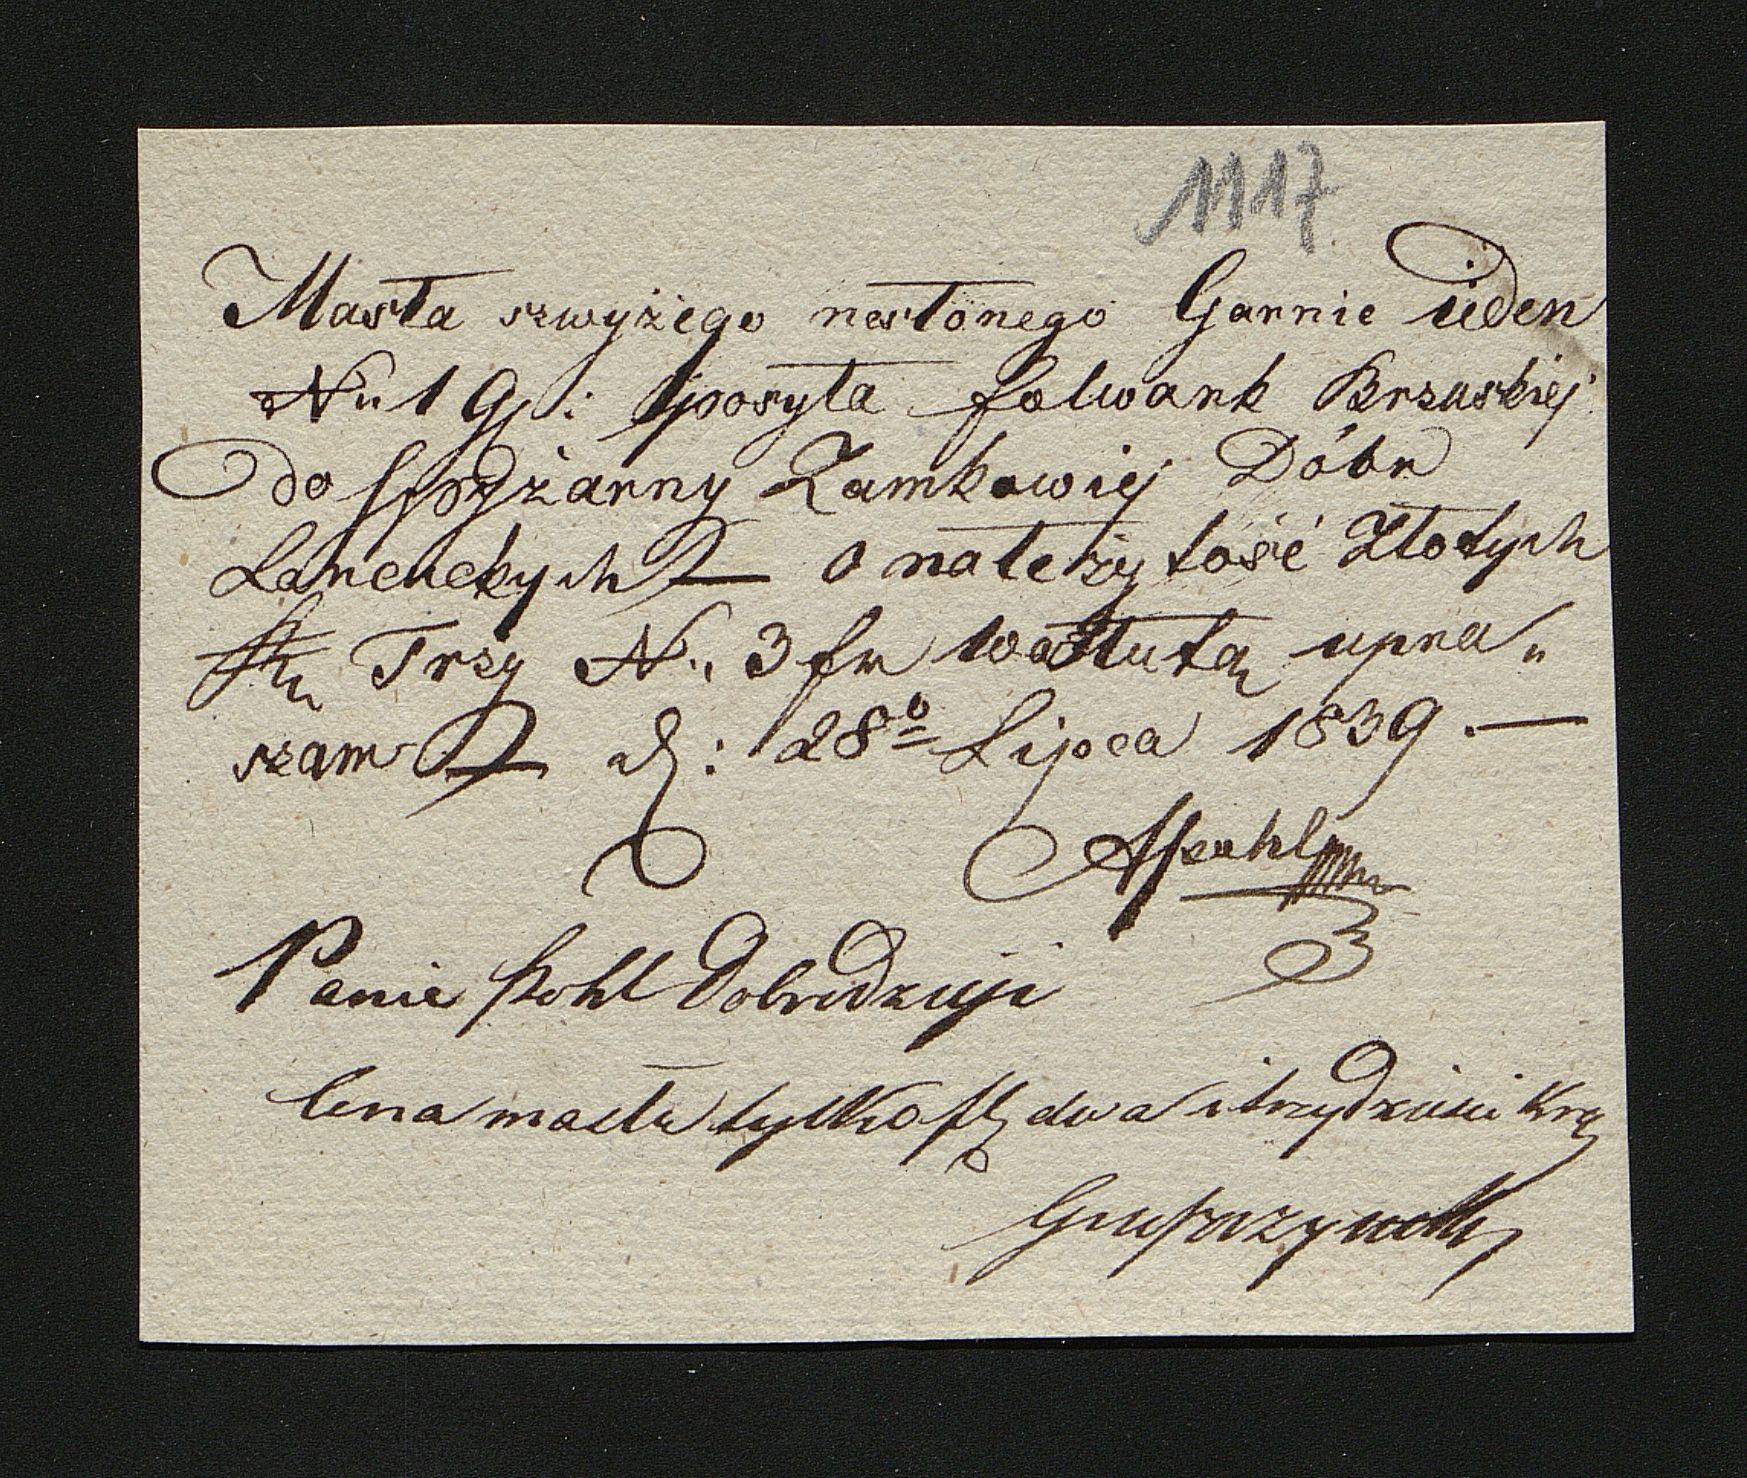 1117
Masła szwyżego nesłonego Garnie ieden
N: 1 G: posyła folwark Brzuskiej
do Spżyżarny Zamkowiej Dóbr
Lancuckych O należytość Złotych
Trzy N: 3 fr Wałutą upra„
szam d: 28º Lipca 1839. —
APohl
Panie Pohl Dobrodzieju
Cena masła tylko f dwa i trzydzieści Kr